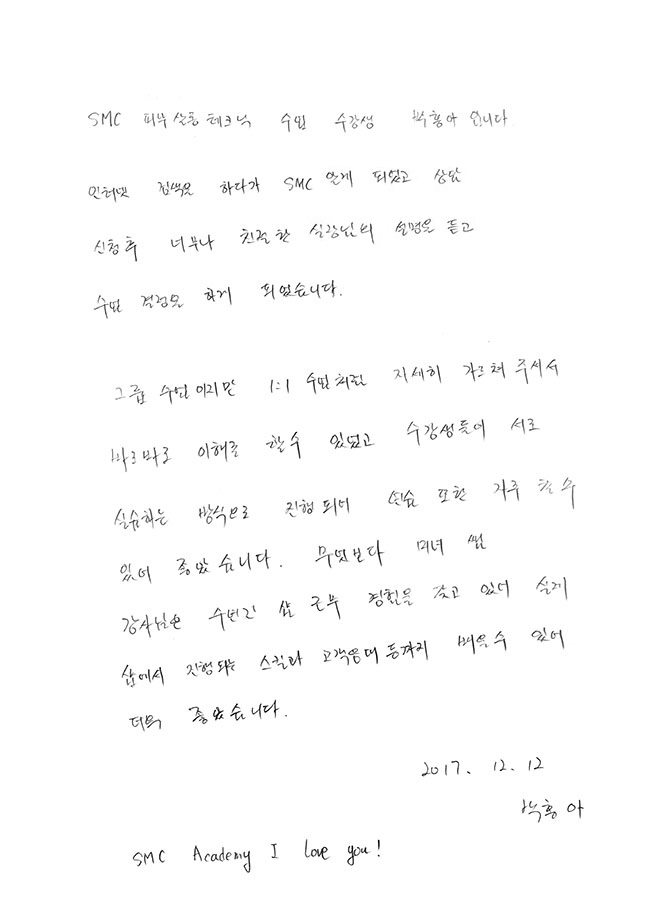 SMC 피부 살롱 테크닉 수업 수강생 박홍아 입니다
인터넷 검색을 하다가 SMC 알게 되었고 상담
신청 후 너무나 친절한 실장님의 설명을 듣고
수업 결정을 하게 되었습니다.
그룹 수업이지만 1:1 수업처럼 자세히 가르쳐 주셔서
바로바로 이해를 할 수 있었고 수강생들이 서로
실습하는 방식으로 진행되어 연습 또한 자주 할 수
있어 좋았습니다. 무엇보다 미녀 쌤
강사님은 수년간 샵 근무 경험을 갖고 있어 실제
샵에서 진행되는 스킬과 고객응대 등까지 배울 수 있어
더욱 좋았습니다.
2017. 12. 12
박홍아
SMC Academy I love you!